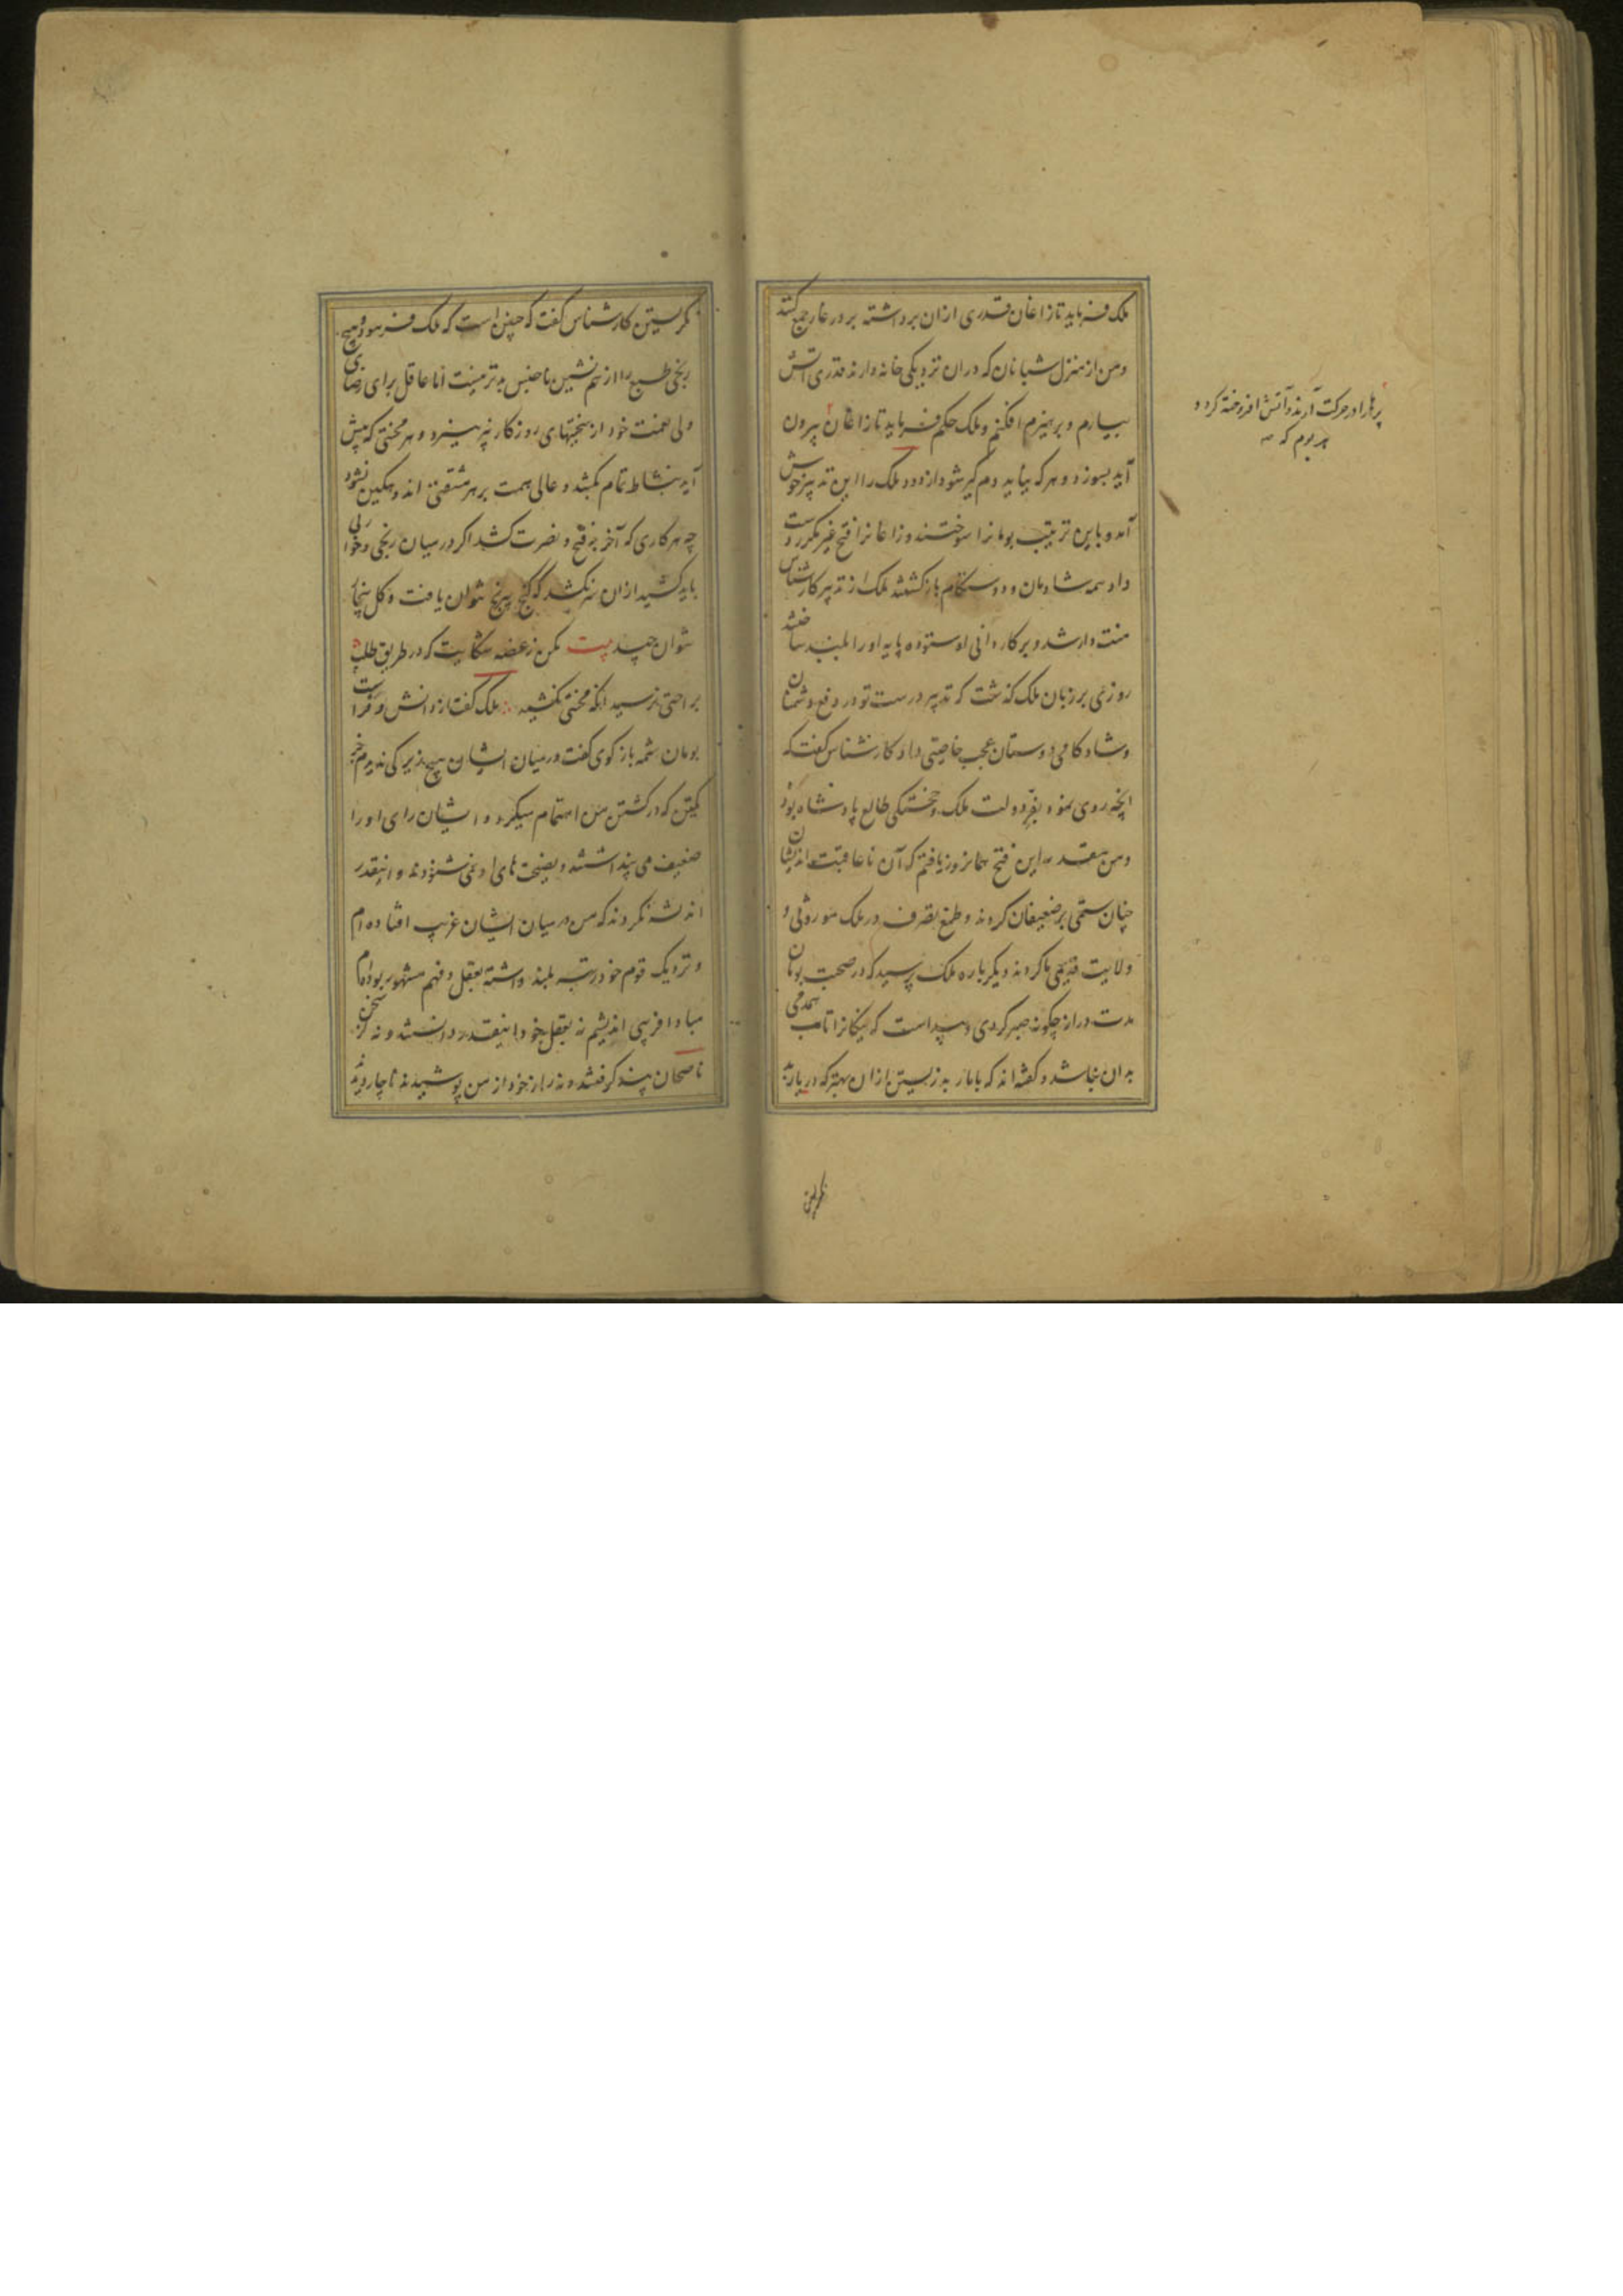 ملک فرماید تا زاغان قدری ازان برداشته بر در غار جمع کنند
ومن از منزل شبانان که دران نزدیکی خانه دارند قدری آتش
بیارم و بر هیزم افکنم و ملک حکم فرماید تا زاغان بیرون
پرها را در حرکت آرند و آتش افروخته کردد
هر بوم که
آید بسوزد و هر که نیاید دم گیر شود از دود ملک را این تدبیر خوش
آمد و باین ترتیب بومانرا سوختند و زاغانرا فتح غیر مکرر دست
داد همه شادمان و دوستکام بازگشتند ملک از تدبیر کارشناس
منت دار شد و بر کاردانی او ستوده پایه اورا بلند ساختند
روزی بر زبان ملک گذشت که تدبیر درست تو در دفع دشمنان
و شادکامی دوستان عجب خاصیتی داد کارشناس گفت که
انچه روی نمود بفر دولت ملک و خجستگی طالع پادشاه بود
ومن معتقد این فتح همانروز یافتم که آن ناعاقبت اندیشان
چنان ستمی بر ضعیفان کردند و طمع تصرف در ملک موروثی و
ولایت قدیمی ما کردند دیگر باره ملک پرسید که در صحبت بومان
مدت دراز چگونه صبر کردی و پیداست که نیکانرا تاب همدمی
بدان نباشد و گفته اند که با مار بد زیستن ازان بهتر که در یار بد
نگریستن
نگریستن کارشناس گفت که چنین است که ملک فرمود و هیچ
رنجی طبع را از هم نشین ناجنس بدتر نیست اما عاقل برای رضای
ولی نعمت خود از سختیهای روزگار نپرهیزد و هر محنتی که پیش
آید بنشاط تمام بکشد و عالی همت بر هر مشقتی اندوهگین نشود
چه هر کاری که آخر به فتح و نصرت کشد اگر در میان رنجی و خواری
باید کشید ازان سر نکشد که گنج بی رنج نتوان یافت و گل بیخار
نتوان چید بیت مکن ز غصه شکایت که در طریق طلب
براحتی نرسید انکه محنتی نکشید ملک گفت از دانش و فراست
بومان شمه باز گوی گفت در میان ایشان هیچ زیرکی ندیدم جز
یکتن که در کشتن من اهتمام میکرد و ایشان رای اورا
ضعیف می پنداشتند و نصیحت های او نمی شنودند و اینقدر
اندیشه نکردند که من در میان ایشان غریب افتاده ام
و نزدیک قوم خود رتبه بلند داشته بعقل و فهم مشهور بوده ام
مبادا فریبی اندیشم نه بعقل خود اینقدر دانستند و نه سخن
ناصحان پند گرفتند و نه راز خود از من پوشیدند ناچار دیدند